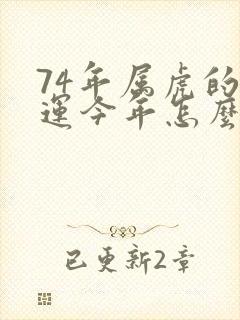 74年属虎的
運今年怎麽
已更新2章